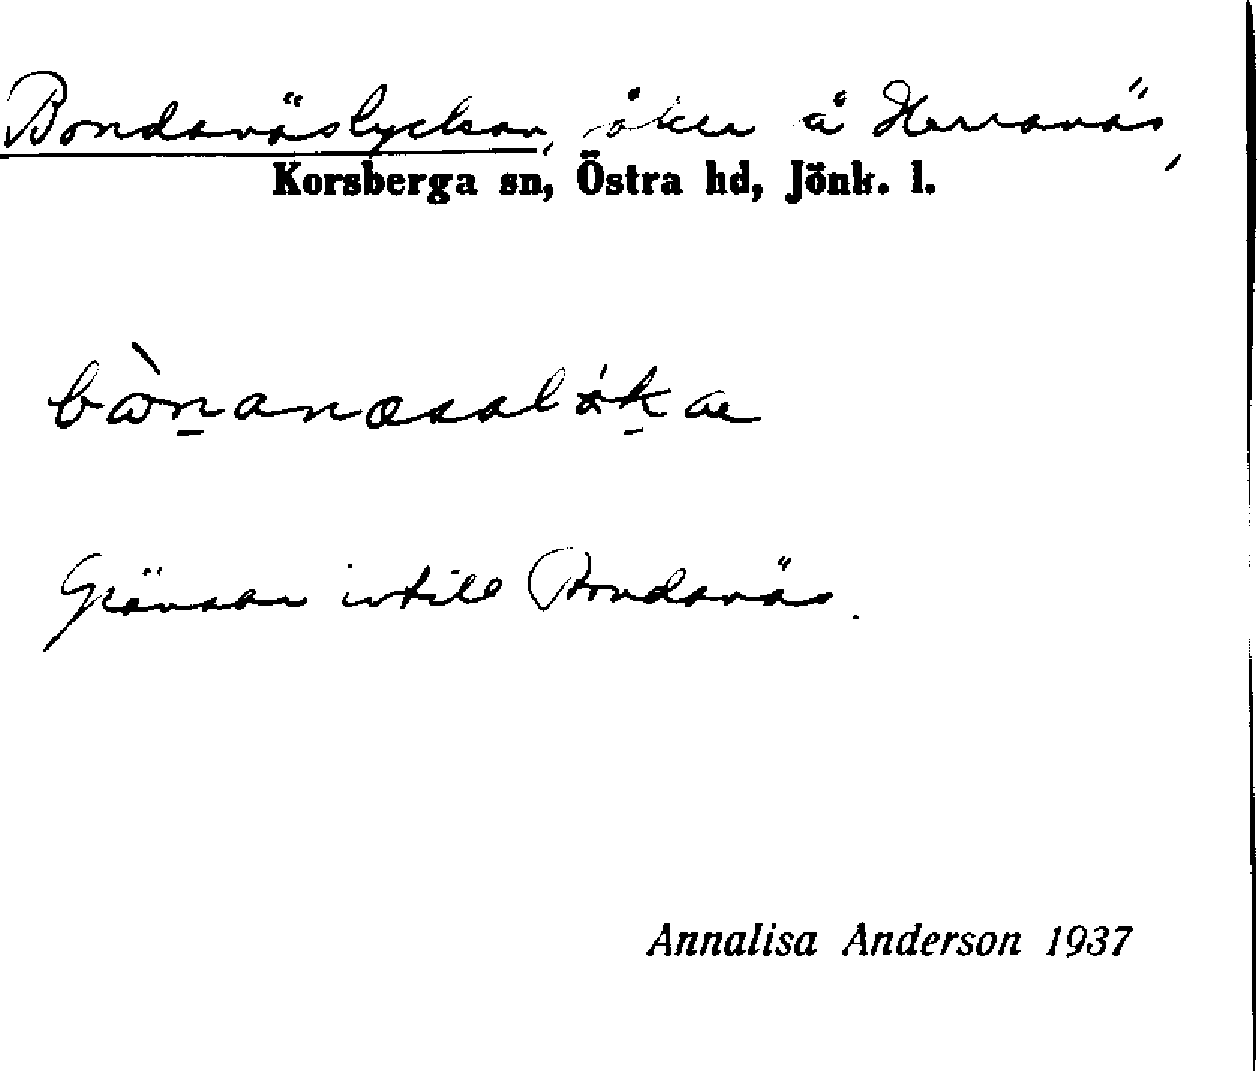 Bondanäslyckan, åker å Herranäs,
Korsberga sn, Östra hd, Jönk. l.
Gränsar intill Bondanäs.
Annalisa Anderson 1937